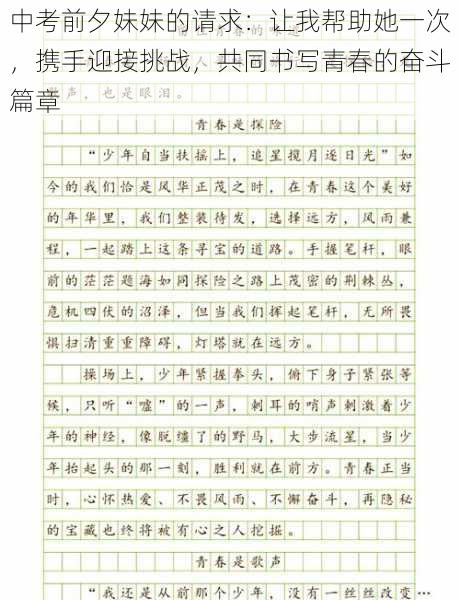 中考前夕妹妹的请求：让我帮助她一次
，携手迎接挑战，共同书写青春的奋斗
篇章
声，也是眼泪。
青春是探险
“少年自当扶摇上，追星揽月逐日光”如
今的我们恰是风华正茂之时，在青春这个美好
的年华里，我们整装待发，选择远方，风雨兼
程，一起踏上这条寻宝的道路。手握笔杆，眼
前的茫茫题海如同探险之路上茂密的荆棘丛，
危机四伏的沼泽，但当我们挥起笔杆，无所畏
惧扫清重重障碍，灯塔就在远方。
操场上，少年紧握拳头，俯下身子紧张等
候，只听“嘘”的一声，刺耳的哨声刺激着少
年的神经，像脱缰了的野马，大步流星，当少
年抬起头的那一刻，胜利就在前方。青春正当
时，心怀热爱、不畏风雨、不懈奋斗，再隐秘
的宝藏也终将被有心之人挖掘。
青春是歌声
“我还是从前那个少年，没有一丝丝改变…